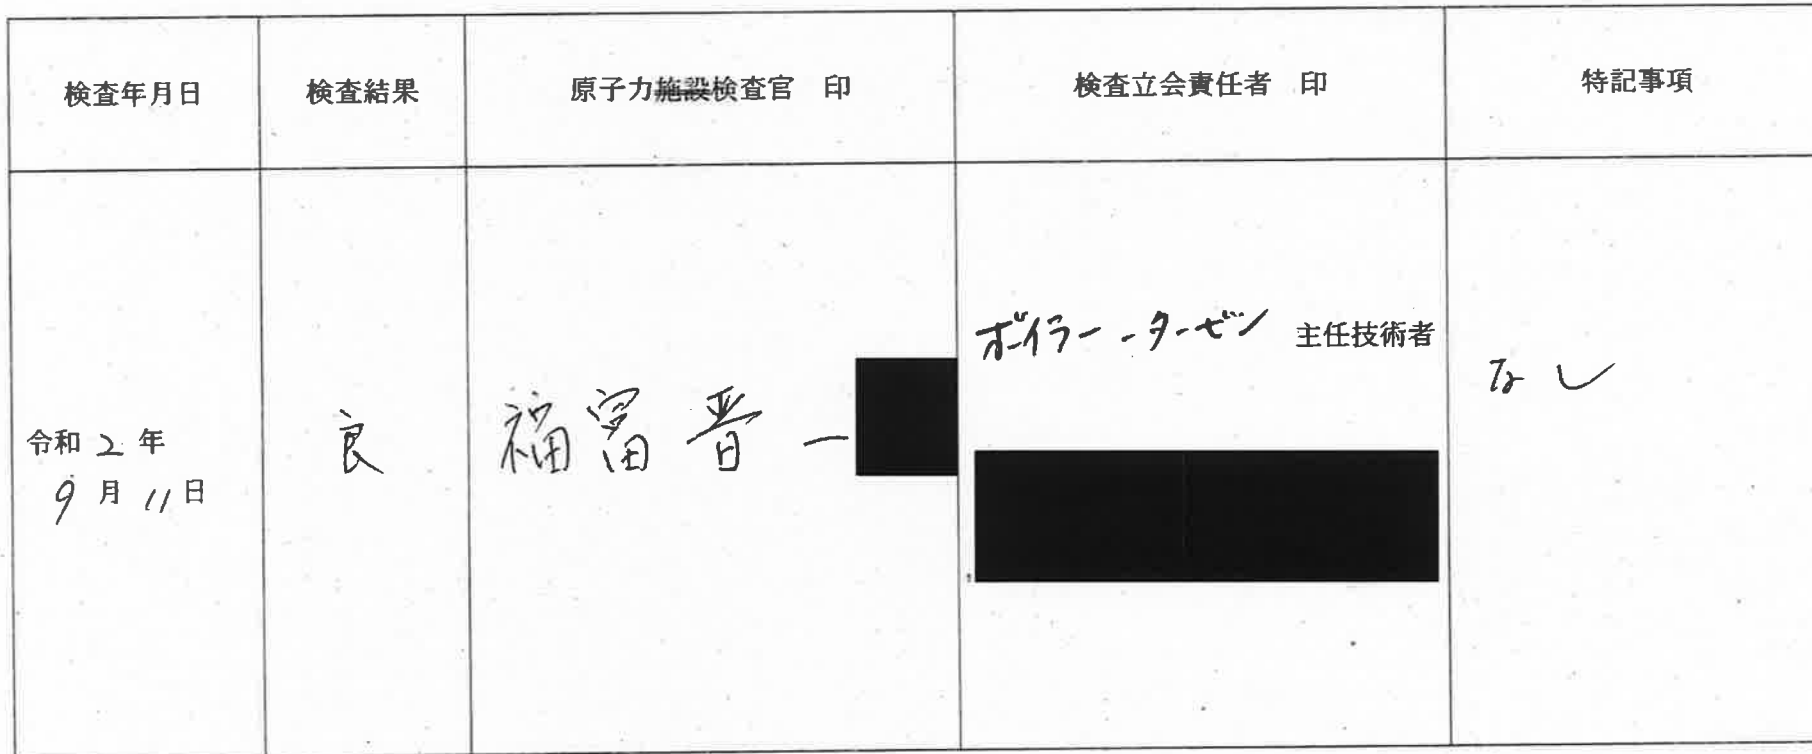 検査年月日
検査結果
原子力施設検査官 印
検査立会責任者 印
特記事項
令和 2 年
9 月 11 日
良
福富晋一
ボイラー・タービン 主任技術者
なし